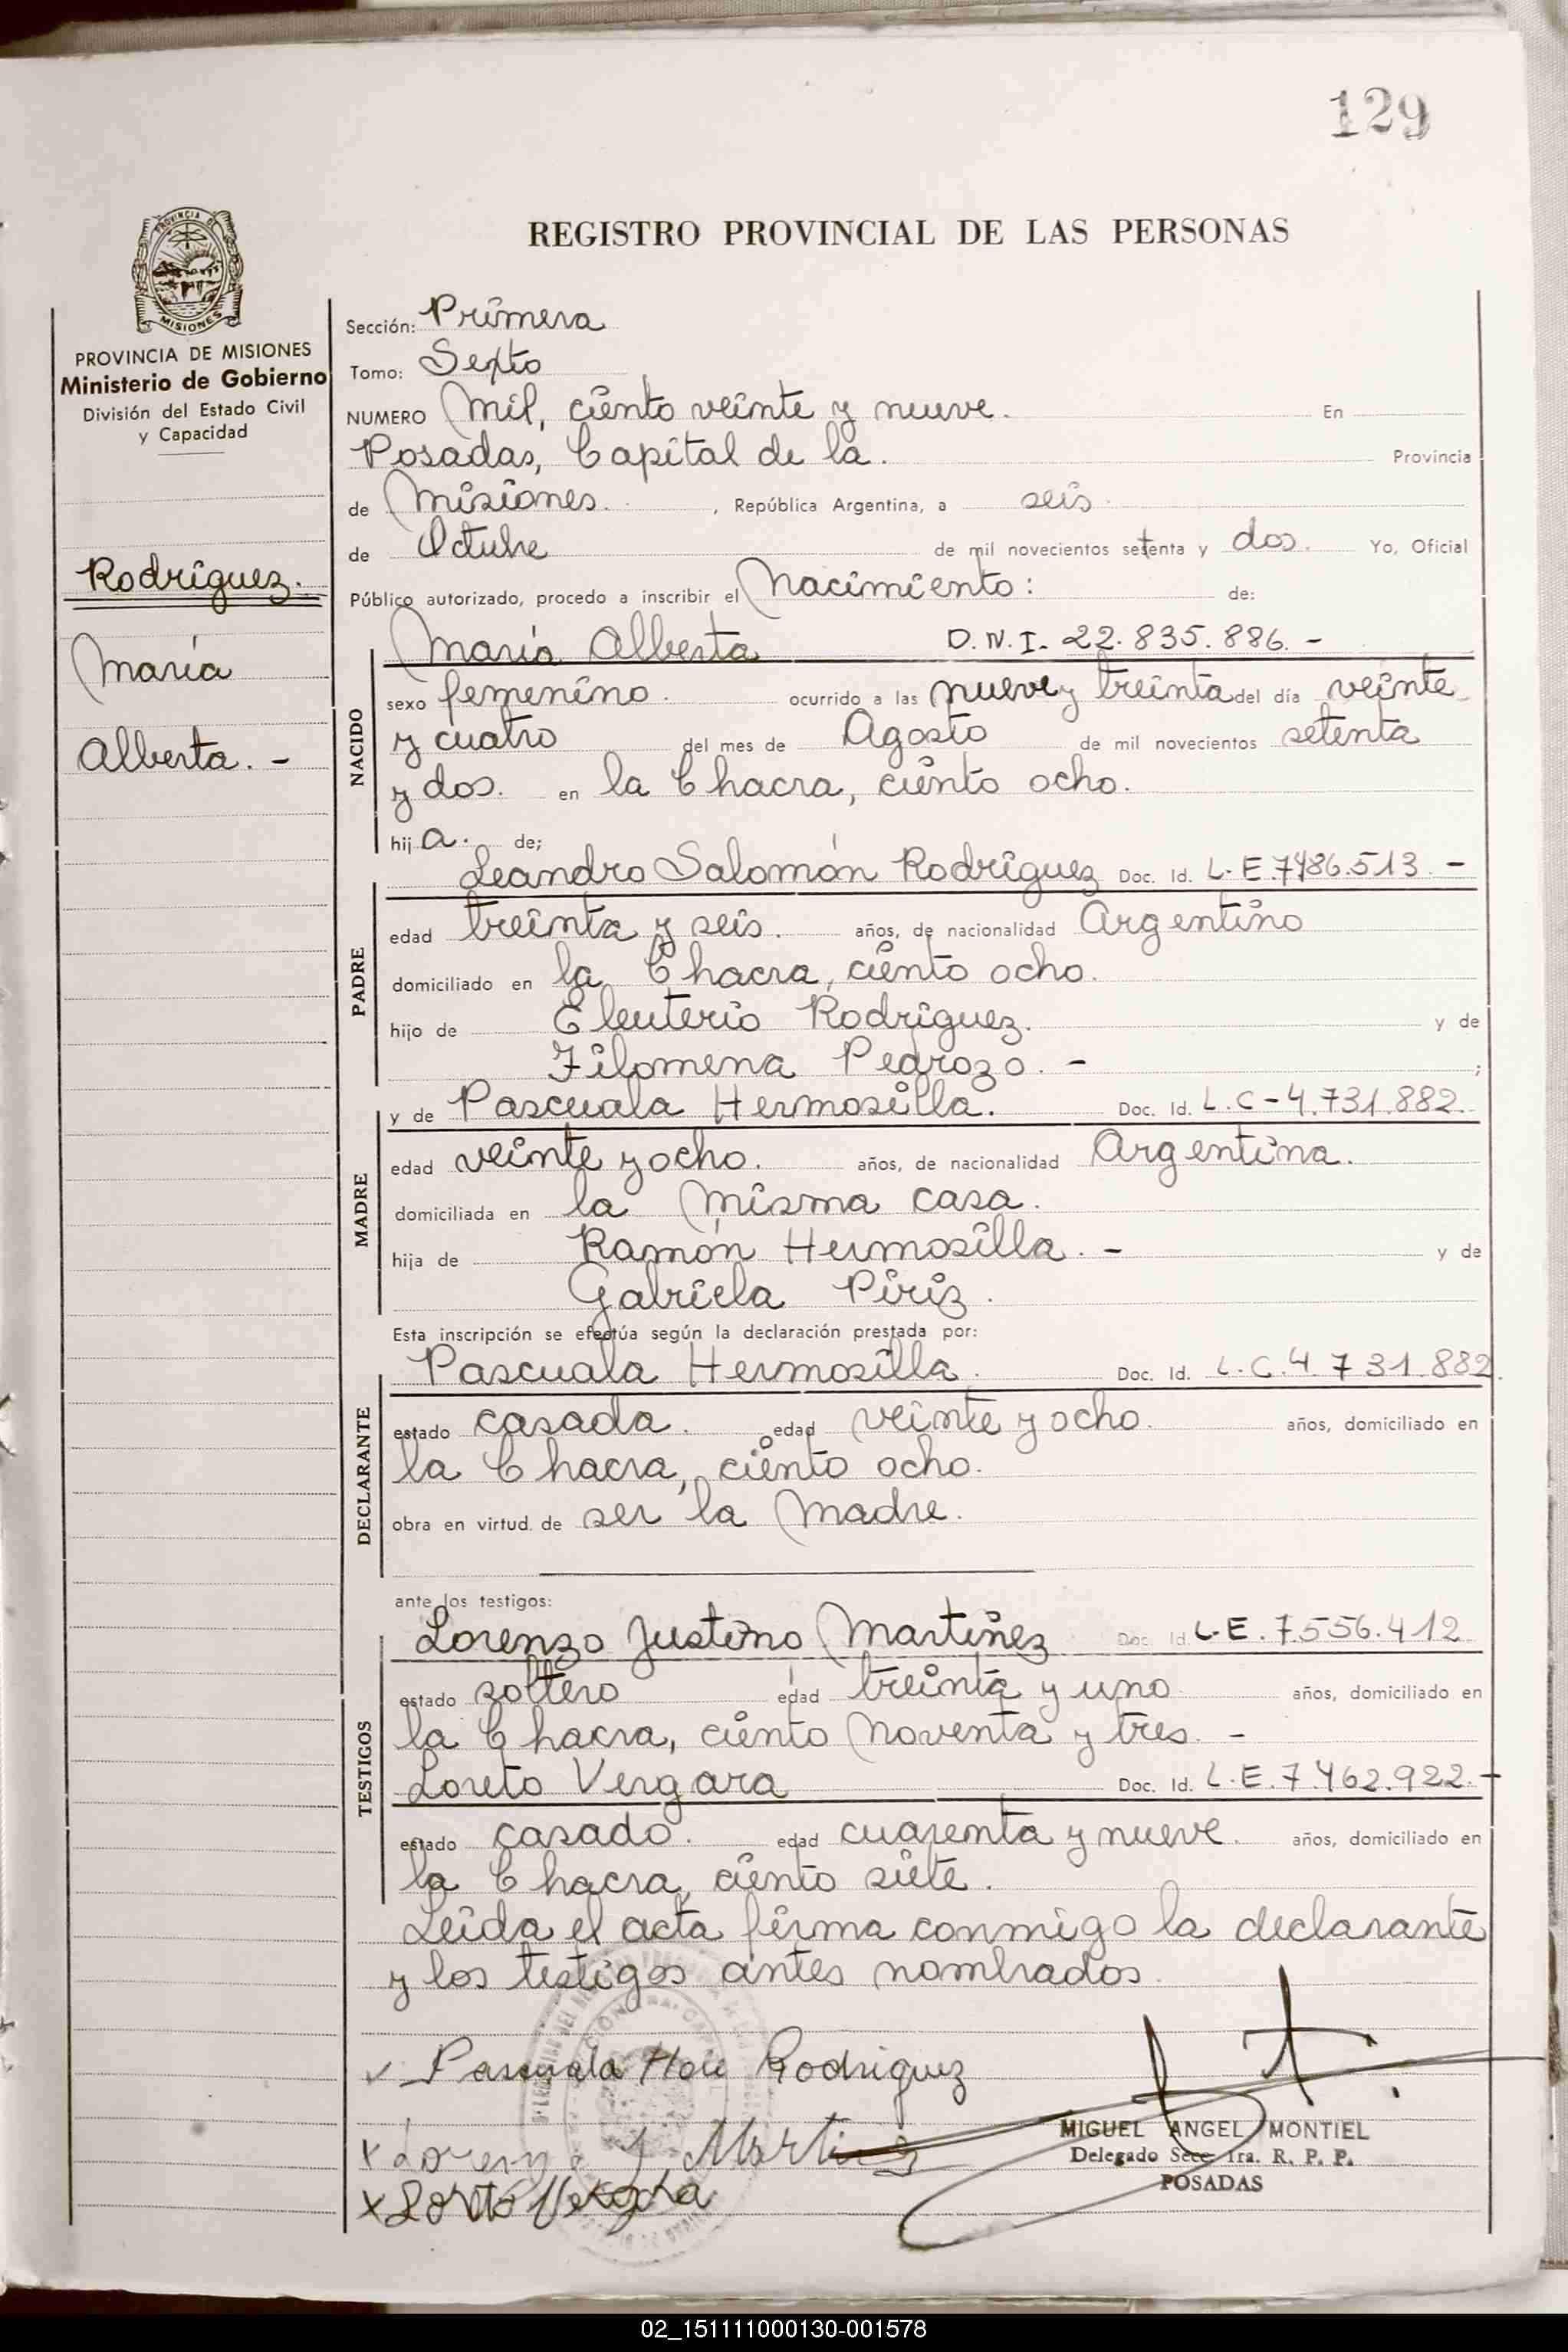 129
REGISTRO PROVINCIAL DE LAS PERSONAS
PROVINCIA DE MISIONES
Ministerio de Gobierno
División del Estado Civil
y Capacidad
Rodríguez.
María
Alberta. -
Sección: Primera
Tomo: Sexto
NUMERO Mil, ciento veinte y nueve. En
Posadas, Capital de la. Provincia
de Misiones. , República Argentina, a seis
de Octubre de mil novecientos setenta y dos. Yo, Oficial
Público autorizado, procedo a inscribir el Nacimiento: de:
NACIDO
María Alberta D.N.I. 22.835.886. -
sexo femenino. ocurrido a las nueve y treinta del día veinte
y cuatro del mes de Agosto de mil novecientos setenta
y dos. en la Chacra, ciento ocho.
hij a. de;
PADRE
Leandro Salomón Rodríguez Doc. Id. L.E. 7486.513. -
edad treinta y seis. años, de nacionalidad Argentino
domiciliado en la Chacra, ciento ocho.
hijo de Eleuterio Rodríguez. y de
Filomena Pedrozo. - ;
MADRE
y de Pascuala Hermosilla. Doc. Id. L.C-4.731.882.
edad veinte y ocho. años, de nacionalidad Argentina.
domiciliada en la misma casa.
hija de Ramón Hermosilla. - y de
Gabriela Piriz.
Esta inscripción se efectúa según la declaración prestada por:
DECLARANTE
Pascuala Hermosilla. Doc. Id. L.C.4 731.882.
estado casada. edad veinte y ocho. años, domiciliado en
la Chacra, ciento ocho.
obra en virtud de ser la Madre.
ante los testigos:
TESTIGOS
Lorenzo Justino Martínez Doc. Id. L.E. 7.556.412
estado soltero edad treinta y uno años, domiciliado en
la Chacra, ciento noventa y tres. -
Loreto Vergara Doc. Id. L.E. 7.462.922. -
estado casado. edad cuarenta y nueve. años, domiciliado en
la Chacra, ciento siete.
Leida el acta firma conmigo la declarante
y los testigos antes nombrados.
Pascuala Rodriguez
x Lorenzo J Martinez
x Loreto Vergara
MIGUEL ANGEL MONTIEL
Delegado Secc. 1ra. R. P. P.
POSADAS
02_151111000130-001578